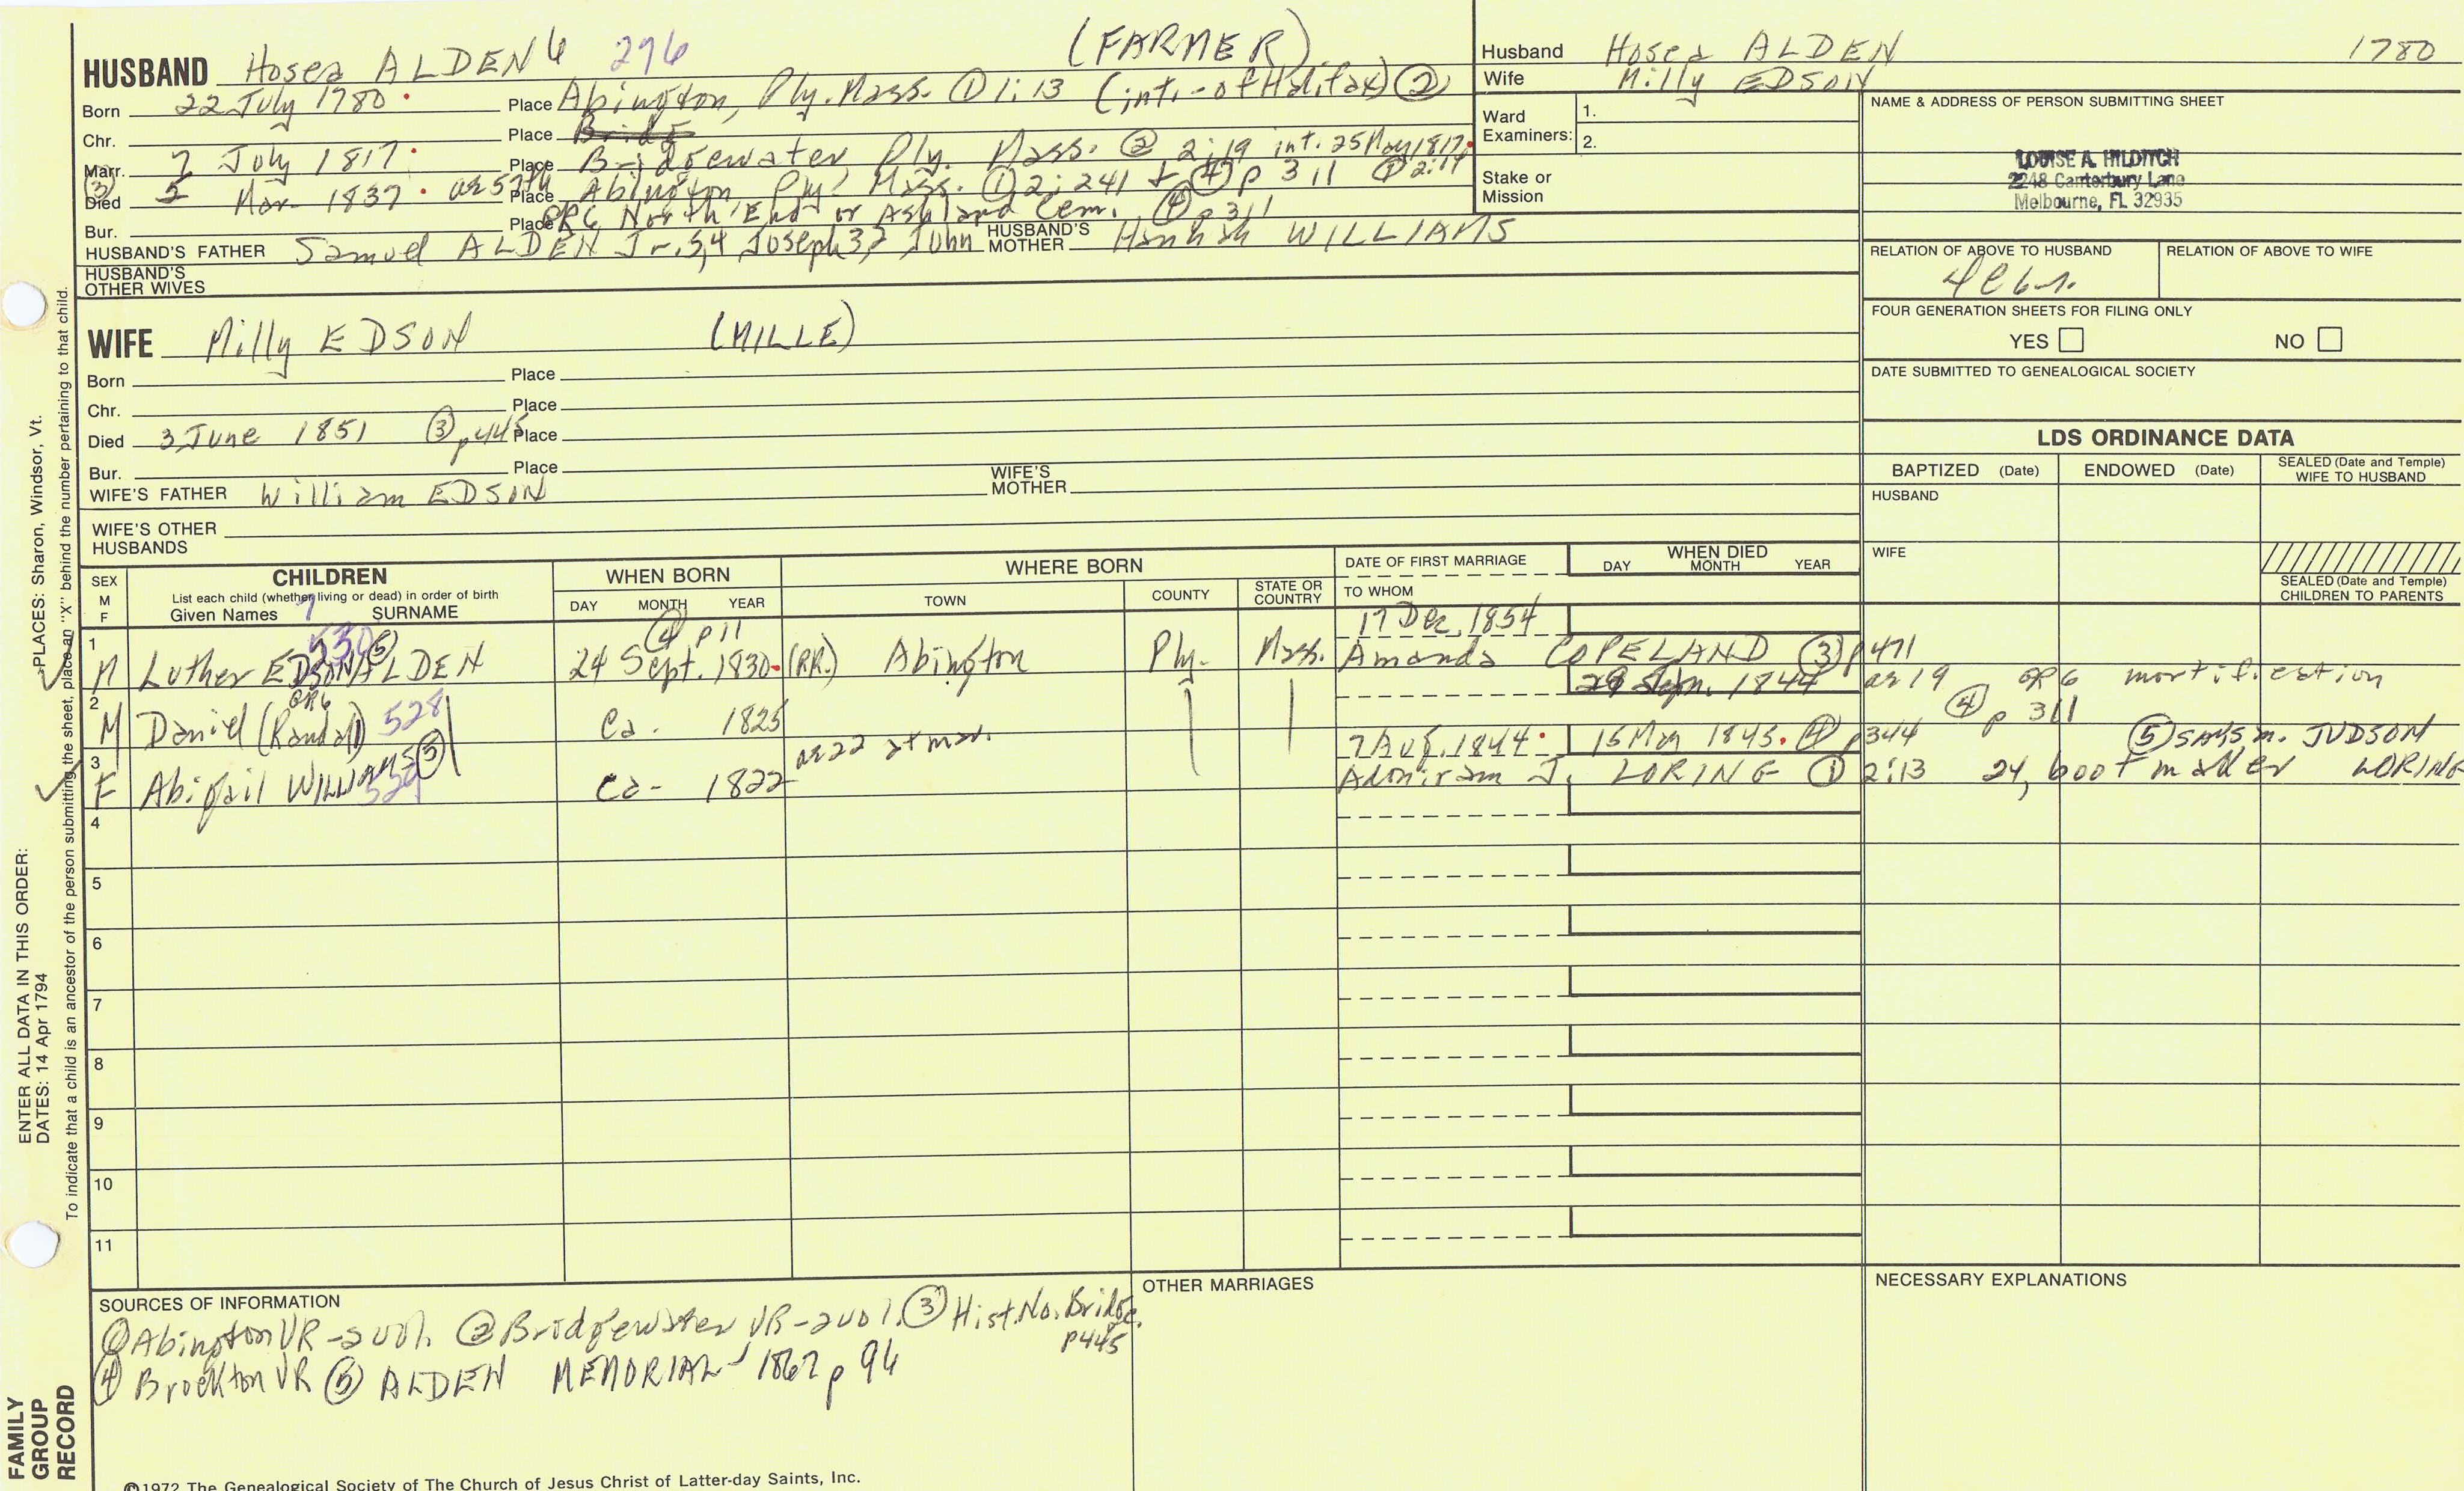 HUSBAND Hosea ALDEN 6 296 (FARMER)
Born 22 July 1780 Place Abington, Ply. Mass. ① 1:13 (int.-of Halifax) ②
Chr. Place
Marr. 7 July 1817 Place Bridgewater Ply. Mass. ② 2:19 int. 25 May 1817
(3) Died 5 Mar. 1837 ae 57th Place Abington Ply. Mass. ① 2:241 + ④ p 311 ① 2:14
Bur. Place GR6 North End or Ashland Cem. ④ p 311
HUSBAND'S FATHER Samuel ALDEN Jr. 5,4 Joseph 3,2 John HUSBAND'S MOTHER Hannah WILLIAMS
HUSBAND'S OTHER WIVES
Husband Hosea ALDEN 1780
Wife Milly EDSON
Ward Examiners: 1.
2.
Stake or Mission
NAME & ADDRESS OF PERSON SUBMITTING SHEET
LOUISE A. HILDITCH
2248 Canterbury Lane
Melbourne, FL 32935
RELATION OF ABOVE TO HUSBAND RELATION OF ABOVE TO WIFE
FOUR GENERATION SHEETS FOR FILING ONLY
YES NO
DATE SUBMITTED TO GENEALOGICAL SOCIETY
WIFE Milly EDSON (MILLE)
Born Place
Chr. Place
Died 3 June 1851 ③ p445 Place
Bur. Place
WIFE'S FATHER William EDSON WIFE'S MOTHER
WIFE'S OTHER HUSBANDS
LDS ORDINANCE DATA
BAPTIZED (Date) ENDOWED (Date) SEALED (Date and Temple) WIFE TO HUSBAND
HUSBAND
WIFE
SEALED (Date and Temple) CHILDREN TO PARENTS
SEX M F CHILDREN
List each child (whether living or dead) in order of birth
Given Names 7 SURNAME
WHEN BORN
DAY MONTH YEAR
WHERE BORN
TOWN COUNTY STATE OR COUNTRY
DATE OF FIRST MARRIAGE
TO WHOM
WHEN DIED
DAY MONTH YEAR
④ p 11 17 Dec. 1854
1 M Luther EDSON ALDEN 530 ⑤ 24 Sept. 1830 (RR.) Abington Ply. Mass. Amanda COPELAND ③ p471
2 M Daniel (Randall) GR6 528 Ca. 1825 Sept. 1844 ae 19 GR6 mortification
④ p 311
3 F Abigail WILLIAMS ⑤ 529 Ca- 1822 ae 22 at mar. 7 Aug. 1844 15 Mar 1845 ④ p344 ⑤ SAYS m. JUDSON LORING
Adoniram J. LORING ① 2:13 24, boot maker
4
5
6
7
8
9
10
11
SOURCES OF INFORMATION
① Abington VR-2 vol. ② Bridgewater VR-2 vol. ③ Hist. No. Bridge. p445
④ Brockton VR ⑤ ALDEN MEMORIAL 1867 p 94
OTHER MARRIAGES
NECESSARY EXPLANATIONS
©1972 The Genealogical Society of The Church of Jesus Christ of Latter-day Saints, Inc.
ENTER ALL DATA IN THIS ORDER:
DATES: 14 Apr 1794
PLACES: Sharon, Windsor, Vt.
To indicate that a child is an ancestor of the person submitting the sheet, place an "X" behind the number pertaining to that child.
FAMILY GROUP RECORD